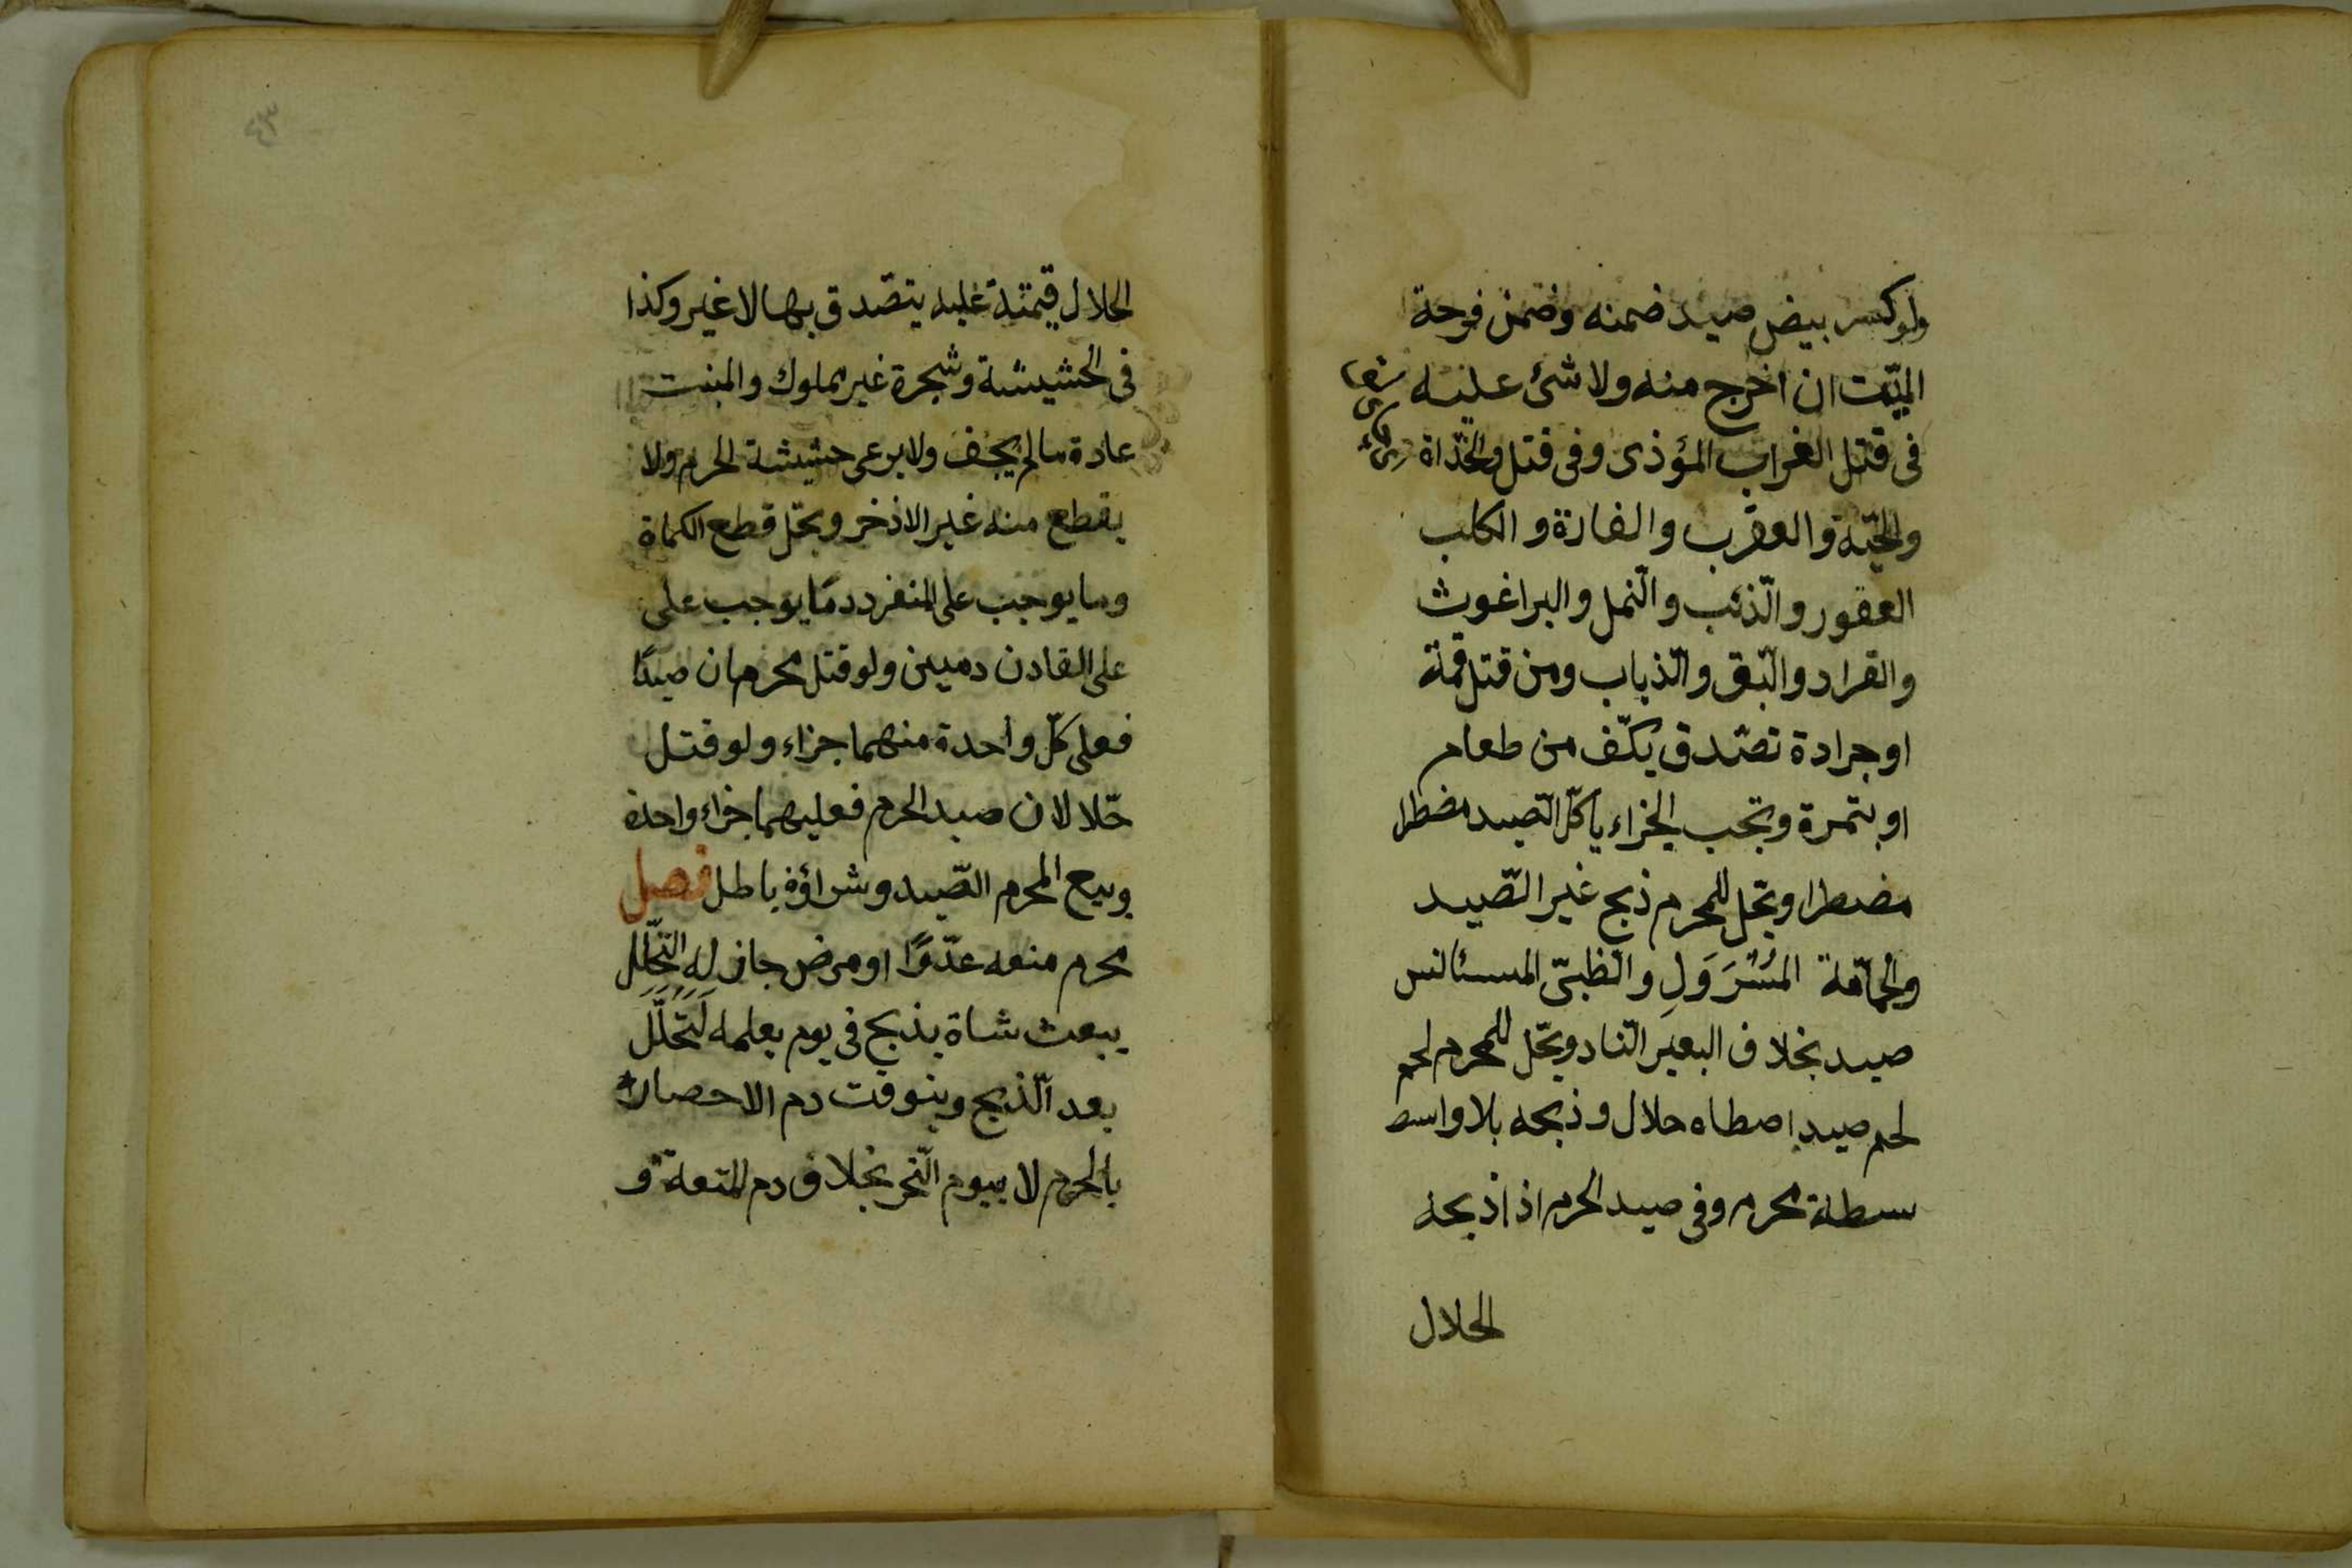 ولو كسر بيض صيد ضمنه وضمن فرحة
الميّت ان اخرج منه ولا شئ عليه
فى قتل الغراب المؤذى وفى قتل والحّداة
والحيّة والعقرب والفارة و الكلب
العقور والّذئب والّنمل والبراغوث
والقراد والّبق والّذباب ومن قتل قملة
او جرادة تصّدق بكّف من طعام
او بتمرة وتجب الجزاء ياكّل الّصيد مضطرا
مضطرا ويحل للمحرم ذبح غير الصّيد
والحمّامة المُسَرْوَلِ والّظبىّ المستانس
صيد بخلاف البعير النّاد ويحّل للمحرم لحم
لحم صيد اصطاه حلال وذبحه بلا واسط
سطة محرم وفى صيد الحرم اذا ذبحه
الحلال
الحلال قيمته عليه يتصّدق بها لا غير وكذا
فى الحشيشة وشجرة غير مملوك والمنبت
عادة مالم يجف ولا يرعى حشيشة الحرم ولا
يقطع منه غير الاذخر ويحّل قطع الكماة
وما يوجب على المنفرد دمًا يوجب على
على القادن دميىن ولو قتل محرمان صيدًا
فعلى كّل واحدة منهما جزاء ولو قتل
حّلالان صيد الحرم فعليهما جزاء واحدة
وبيع المحرم الصّيد وشراؤه باطل فصل
محرم منعه عدّوًا او مرض جاز له التحّلل
يبعث شاة يذبح فى يوم يعلمه لَتَحَلَّلَ
بعد الّذبح ويتوقت دم الاحصار
بالحرم لا بيوم النّحر بخلاف دم المتعة و